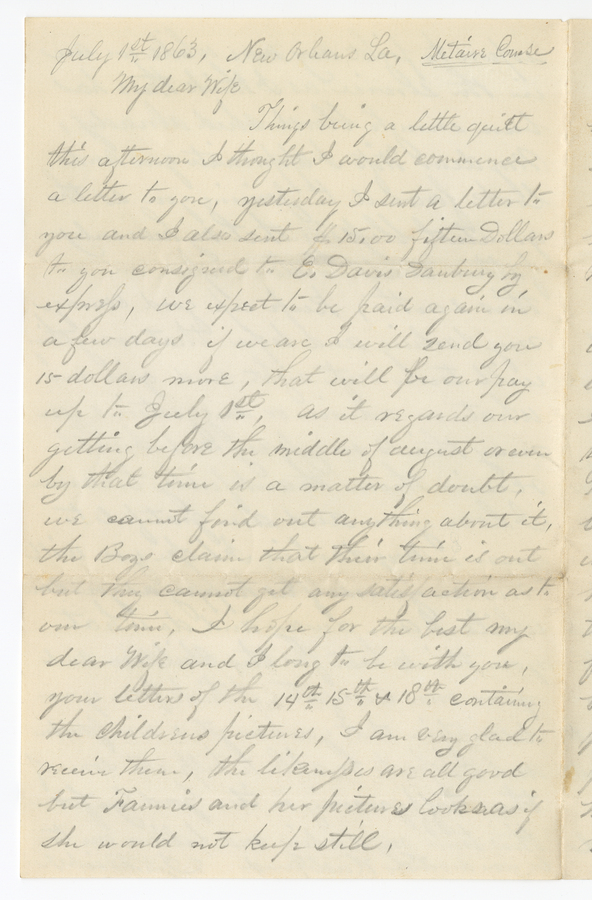 July 1st 1863, New Orleans La, Metaire Course
My dear Wife
Things being a little quiet
this afternoon I thought I would commence
a letter to you, yesterday I sent a letter to
you and I also sent $15,00 fifteen Dollars
to you consigned to E. Davis Danbury by
express, we expect to be paid again in
a few days if we are I will send you
15 dollars more, that will be our pay
up to July 1st, as it regards our
getting before the middle of august or even
by that time is a matter of doubt,
we cannot find out anything about it,
the Boys claim that their time is out
but they cannot get any satisfaction as to
our time, I hope for the best my
dear Wife and I long to be with you,
your letters of the 14th 15th & 18th containing
the childrens pictures, I am very glad to
receive them, the likenesses are all good
but Fannies and her pictures looks as if
she would not keep still,